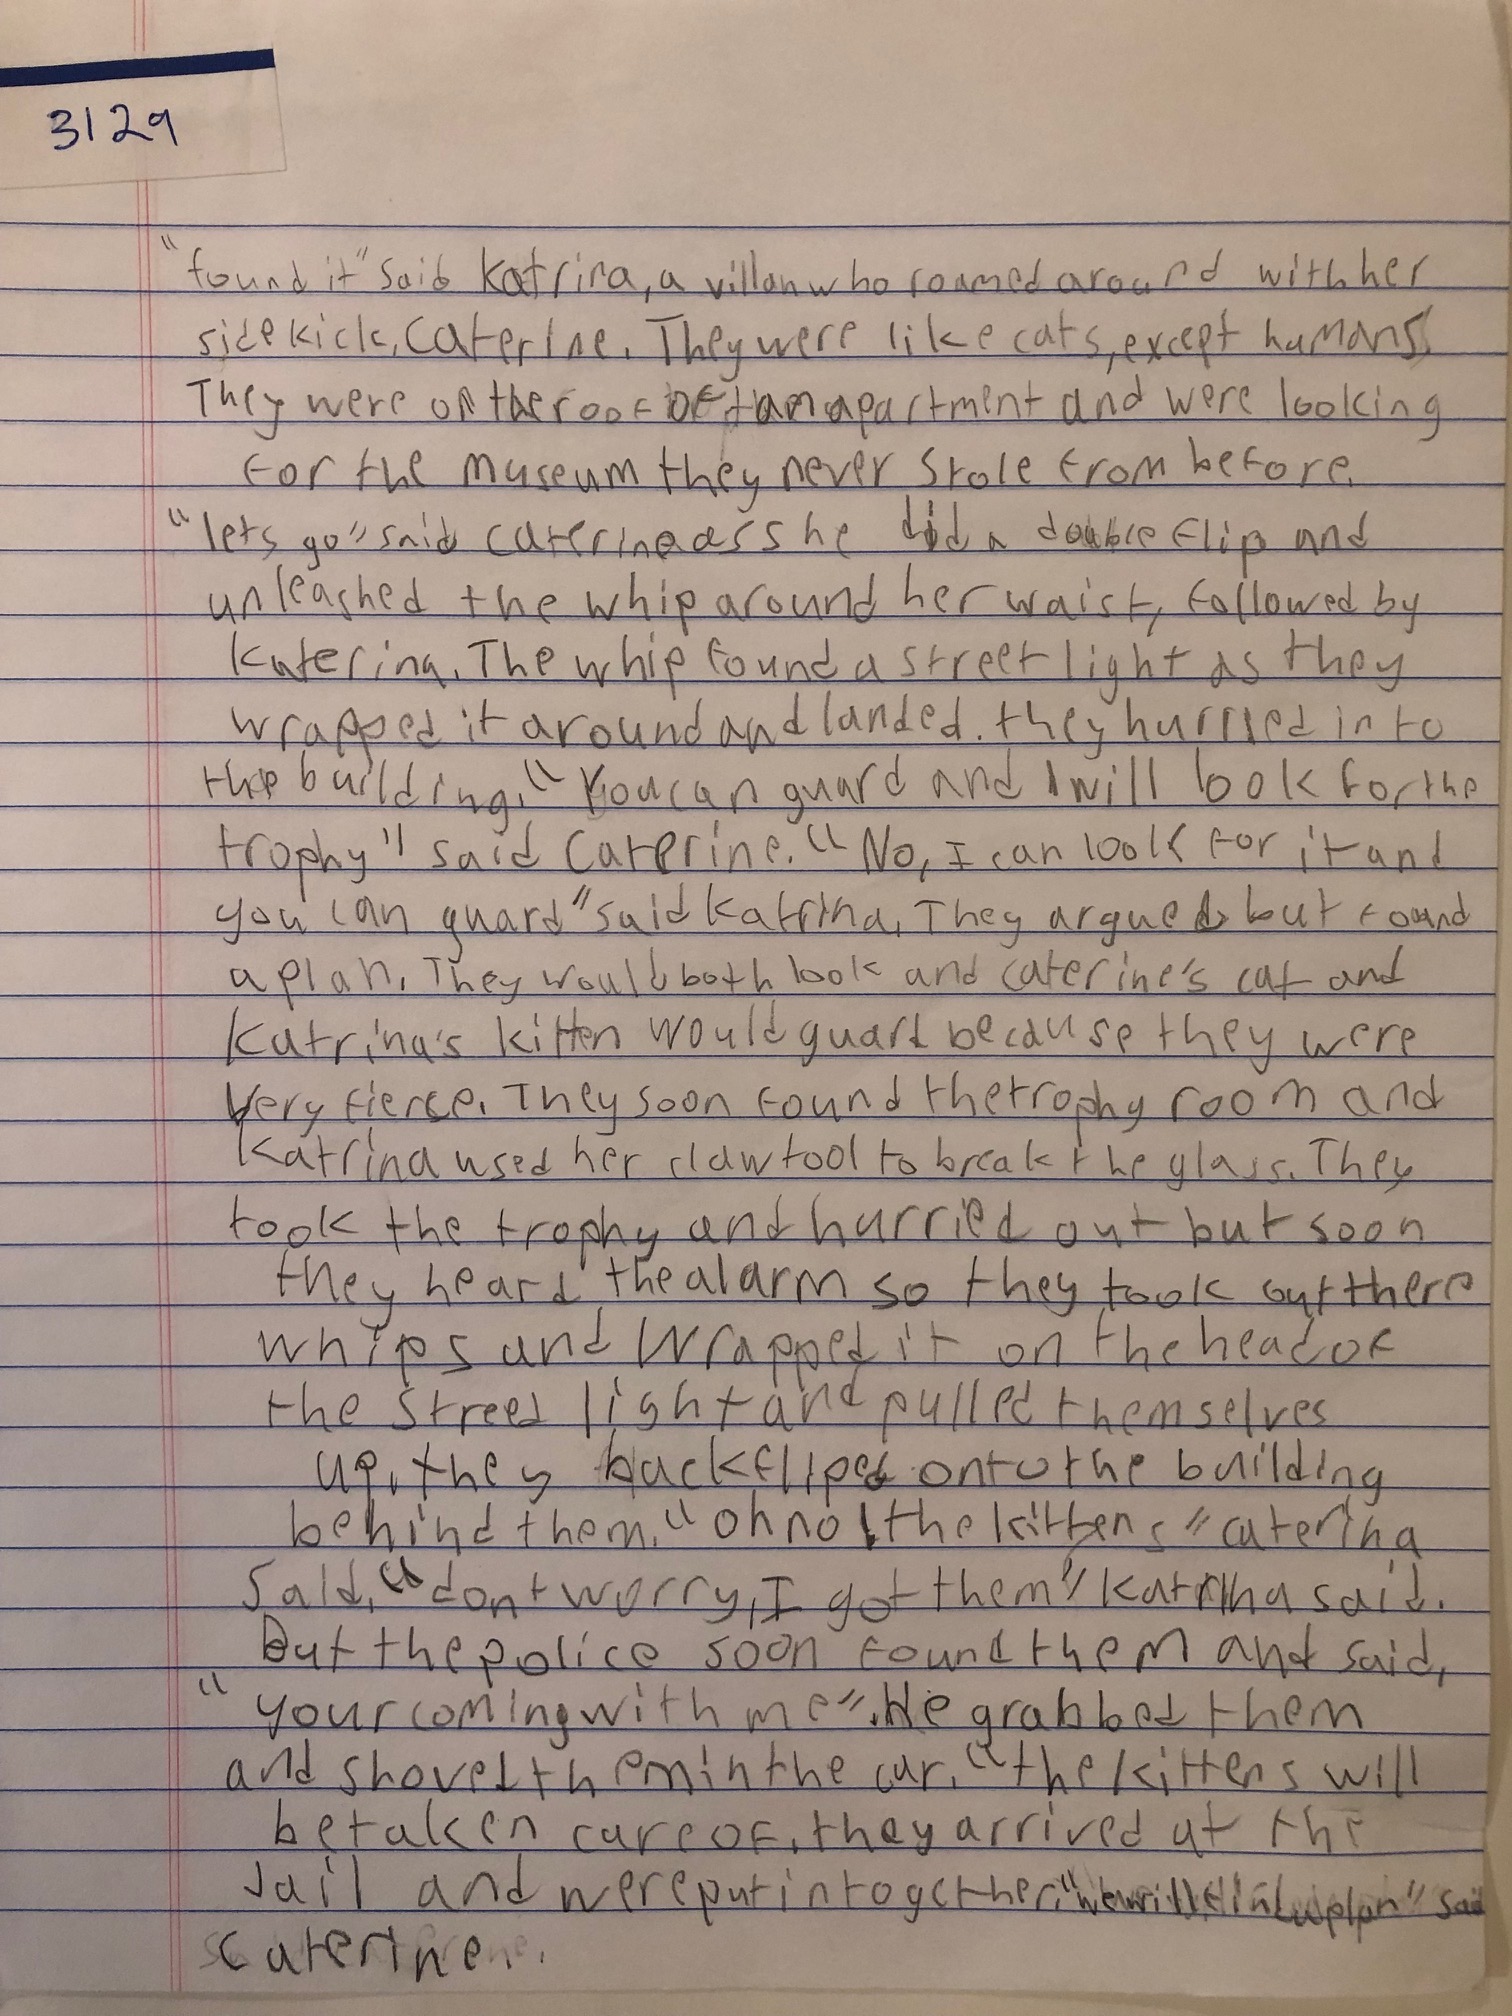 3129
"found it" said Katrina, a villan who roamed around with her
sidekick, Caterine. They were like cats, except humans.
They were on the roof of an apartment and were looking
for the museum they never stole from before.
"lets go" said Caterine as she did a double flip and
unleashed the whip around her waist, followed by
Katerina. The whip found a street light as they
wrapped it around and landed. they hurried into
the building. "You can guard and I will look for the
trophy" said Caterine. "No, I can look for it and
you can guard" said Katrina. They argued but found
a plan. They would both look and caterine's cat and
Katrina's kitten would guard because they were
very fierce. They soon found the trophy room and
Katrina used her claw tool to break the glass. They
took the trophy and hurried out but soon
they heard the alarm so they took out there
whips and wrapped it on the head of
the streed light and pulled themselves
up. they backfliped onto the building
behind them. "oh no! the kittens" caterina
said. "dont worry, I got them" Katrina said.
But the police soon found them and said,
"your coming with me". He grabbed them
and shoved them in the car. "the kittens will
be taken care of. they arrived at the
Jail and were put in together. "we will find a plan" said
caterine.